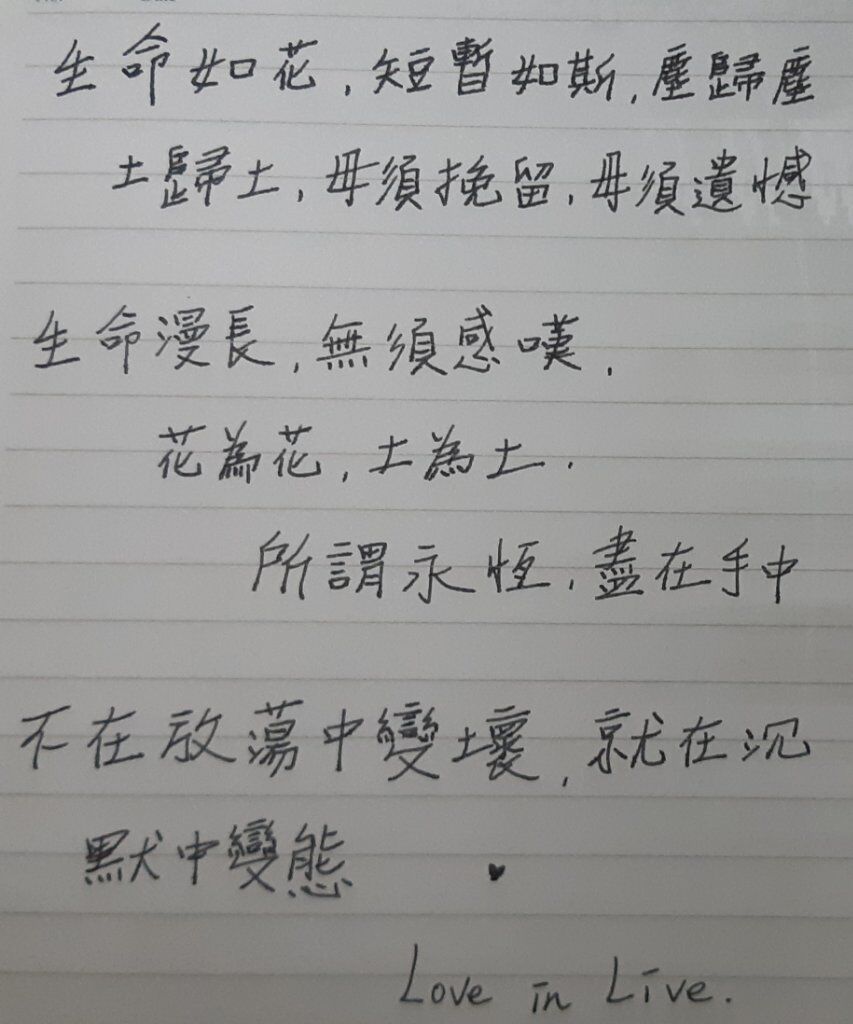 生命如花，短暫如斯，塵歸塵
土歸土，毋須挽留，毋須遺憾
生命漫長，無須感嘆．
花為花，土為土．
所謂永恆，盡在手中
不在放蕩中變壞，就在沉
默中變態
Love in Live.